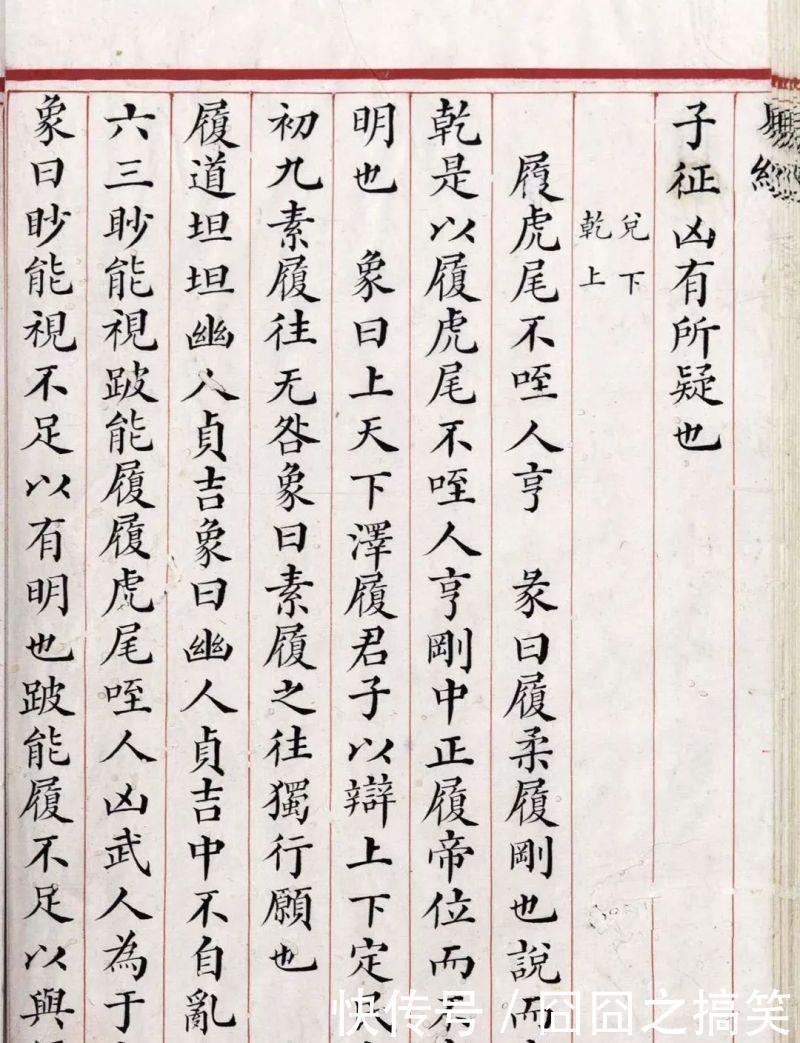 子征凶有所疑也
兌下
乾上
履虎尾不咥人亨 彖曰履柔履剛也說而
乾是以履虎尾不咥人亨剛中正履帝位而不
明也 象曰上天下澤履君子以辯上下定民
初九素履往无咎象曰素履之往獨行願也
履道坦坦幽人貞吉象曰幽人貞吉中不自亂
六三眇能視跛能履履虎尾咥人凶武人為于
象曰眇能視不足以有明也跛能履不足以與
快传号 / 囧囧之搞笑